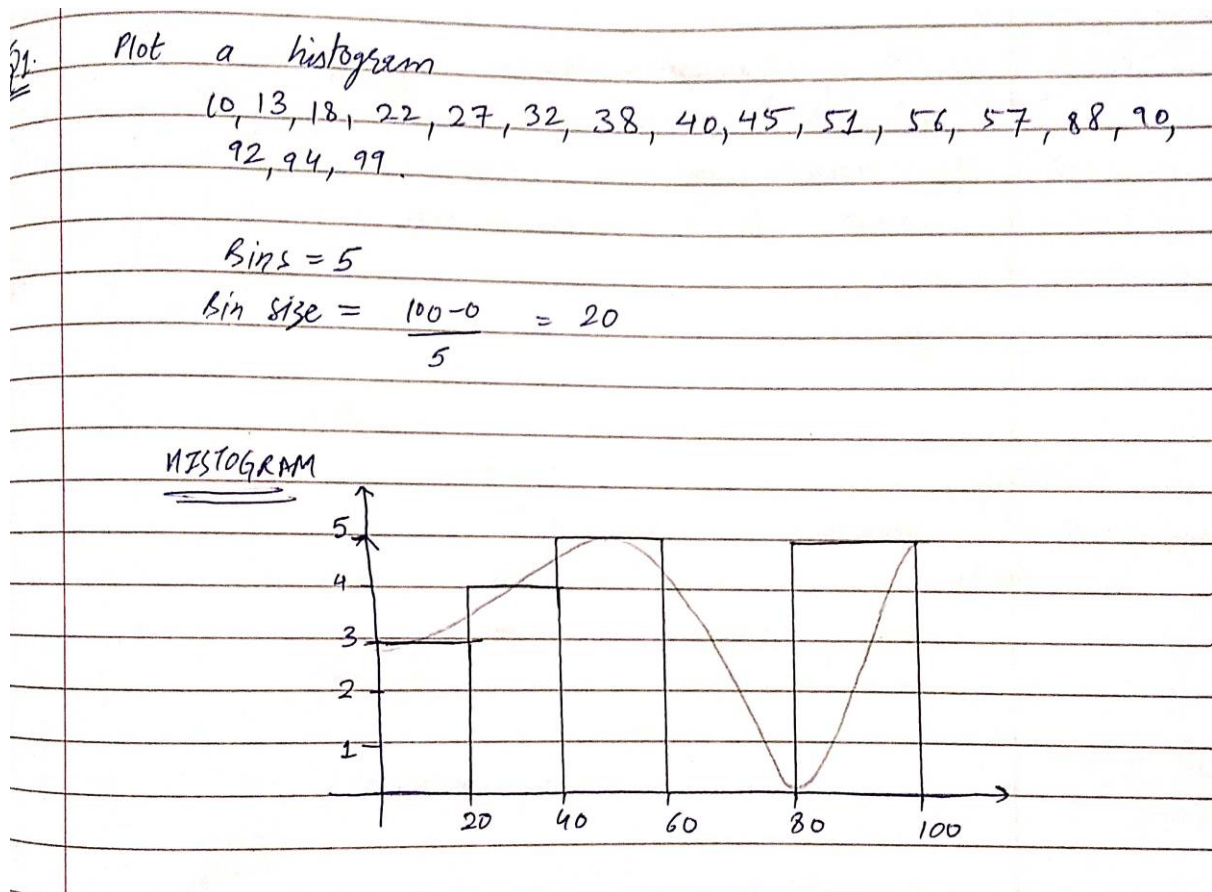 Q1. Plot a histogram
10, 13, 18, 22, 27, 32, 38, 40, 45, 51, 56, 57, 88, 90,
92, 94, 99.
Bins = 5
Bin size = 100-0 = 20
5
HISTOGRAM
5
4
3
2
1
20 40 60 80 100